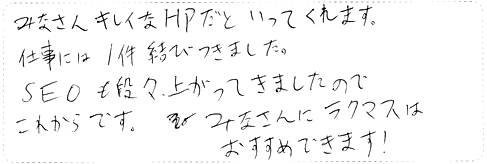 みなさん キレイなHPだと いってくれます。
仕事には 1件 結びつきました。
SEOも段々、上がってきましたので
これからです。 みなさんに ラクマスは
おすすめできます!